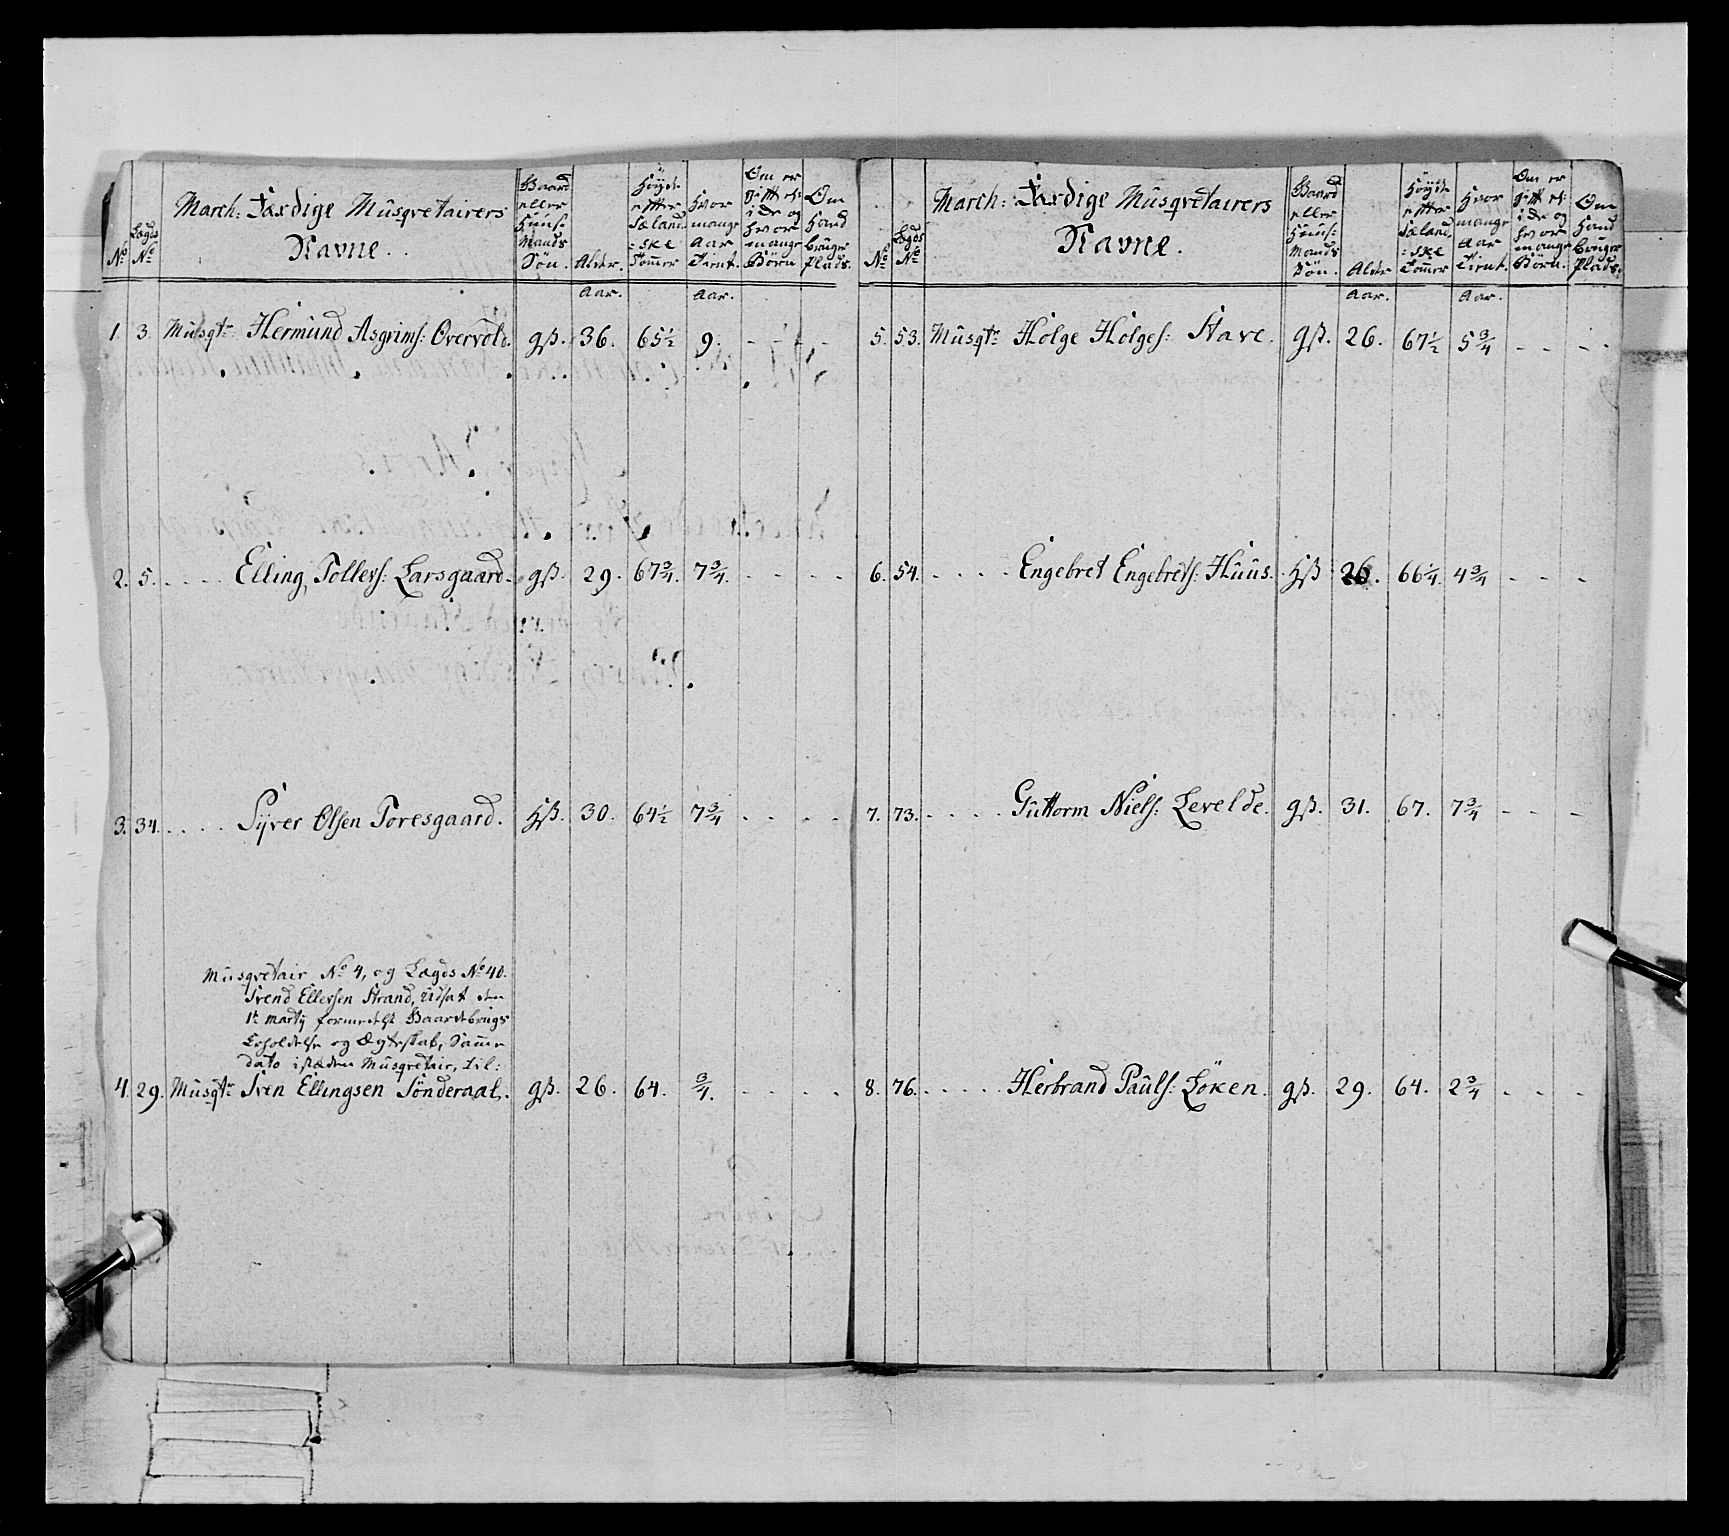 March: Færdige Musqvetairers Navne.
No Lægds No Baard eller Huus: Mands Søn. Alder. Høyde efter Sælands: ske Tommer Hvor mange Aar Tient. Om er gift el: i de og hvor mange Børn Om Hand bruger Plads.
Aar. Aar.
1 3. Musqtr Hermund Asgrims: Overvold. gß. 36. 65½ 9. - - -
2. 5. .... Elling Tollevs: Larsgaard. gß. 29. 67¾. 7¾. - - -
3. 34. .... Syver Olsen Toresgaard. Hß. 30. 64½ 7¾ - - -
Musqvetair No 4, og Lægds No 40.
Svend Ellersen Strand, Udsat den
1te Marty formedelst Baardebrugs
Erholdelse og Ægteskab, Samme
dato isteden Musqvetair, til:
4. 29. Musqtr Sven Ellingsen Sønderaal. gß. 26. 64. ¾. - - -
March: Færdige Musqvetairers Navne.
No Lægds No Baard eller Huus: Mands Søn. Alder Høyde efter Sæland: ske Tommer Hvor mange Aar Tient. Om er gift el: i de og hvor mange Børn. Om Hand bruger Plads.
Aar. Aar.
5. 53. Musqtr Holge Holges: Stave. gß. 26. 67½ 5¾ - - -
6. 54. .... Engebret Engebrets: Huus. Hß 26. 66¼. 4¾ - - -
7. 73. .... Guttorm Niels: Levelde. gß. 31. 67. 7¾ - - -
8. 76. .... Herbrand Pauls: Løken. gß. 29. 64. 2¾ - - -